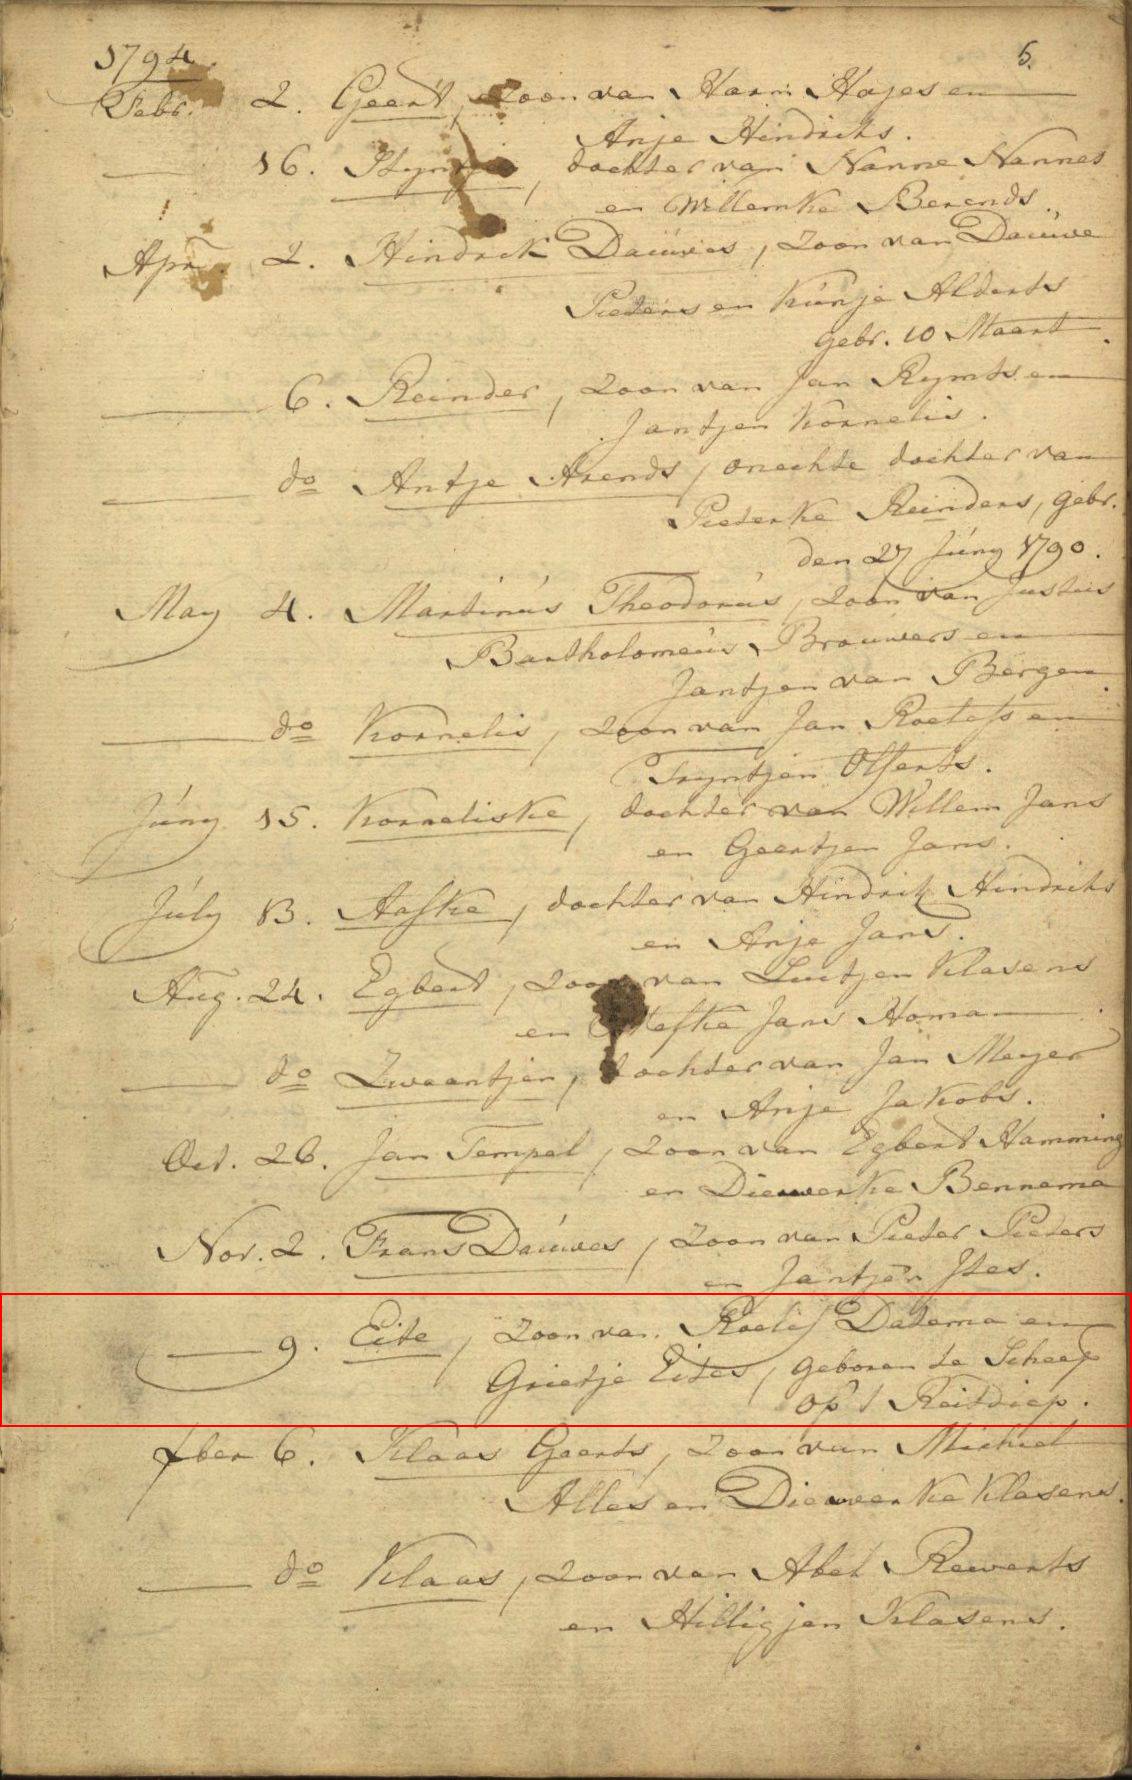 1794.
5.
Febr. 2. Geert, zoon van Harm Hajes en
Anje Hindriks.
16. Styntjen, dochter van Nanne Nannes
en Willemke Berends.
Apr. 2. Hindrik Dauwes, zoon van Dauwe
Pieters en Kunje Alderts
gebr. 10 Maart.
6. Reinder, zoon van Jan Rymts en
Jantjen Kornelis.
do Antje Arends, onechte dochter van
Pieterke Reinders, gebr.
den 27 Juny 1790.
May 4. Martinus Theodorus, zoon van Justus
Bartholomeus Brouwers en
Jantjen van Bergen.
do Kornelis, zoon van Jan Roelefs en
Tryntjen Olferts.
Juny 15. Korneliske, dochter van Willem Jans
en Geertjen Jans.
July 13. Aafke, dochter van Hindrik Hindriks
en Anje Jans.
Aug. 24. Egbert, zoon van Luitjen Klasens
en Jans Homan.
do Zwaantjen, dochter van Jan Meyer
en Anje Jakobs.
Oct. 26. Jan Tempel, zoon van Egbert Hamming
en Dieuwerke Bennema
Nov. 2. Frans Dauwes, zoon van Pieter Pieters
en Jantjen Ites.
9. Eite, zoon van Roelef Datema en
Grietje Eites, geboren te Scheep
op 't Reitdiep.
Xber 6. Klaas Geerts, zoon van Michiel
Alles en Dieuwerke Klasens.
do Klaas, zoon van Abel Rewerts
en Hilligjen Klasens.